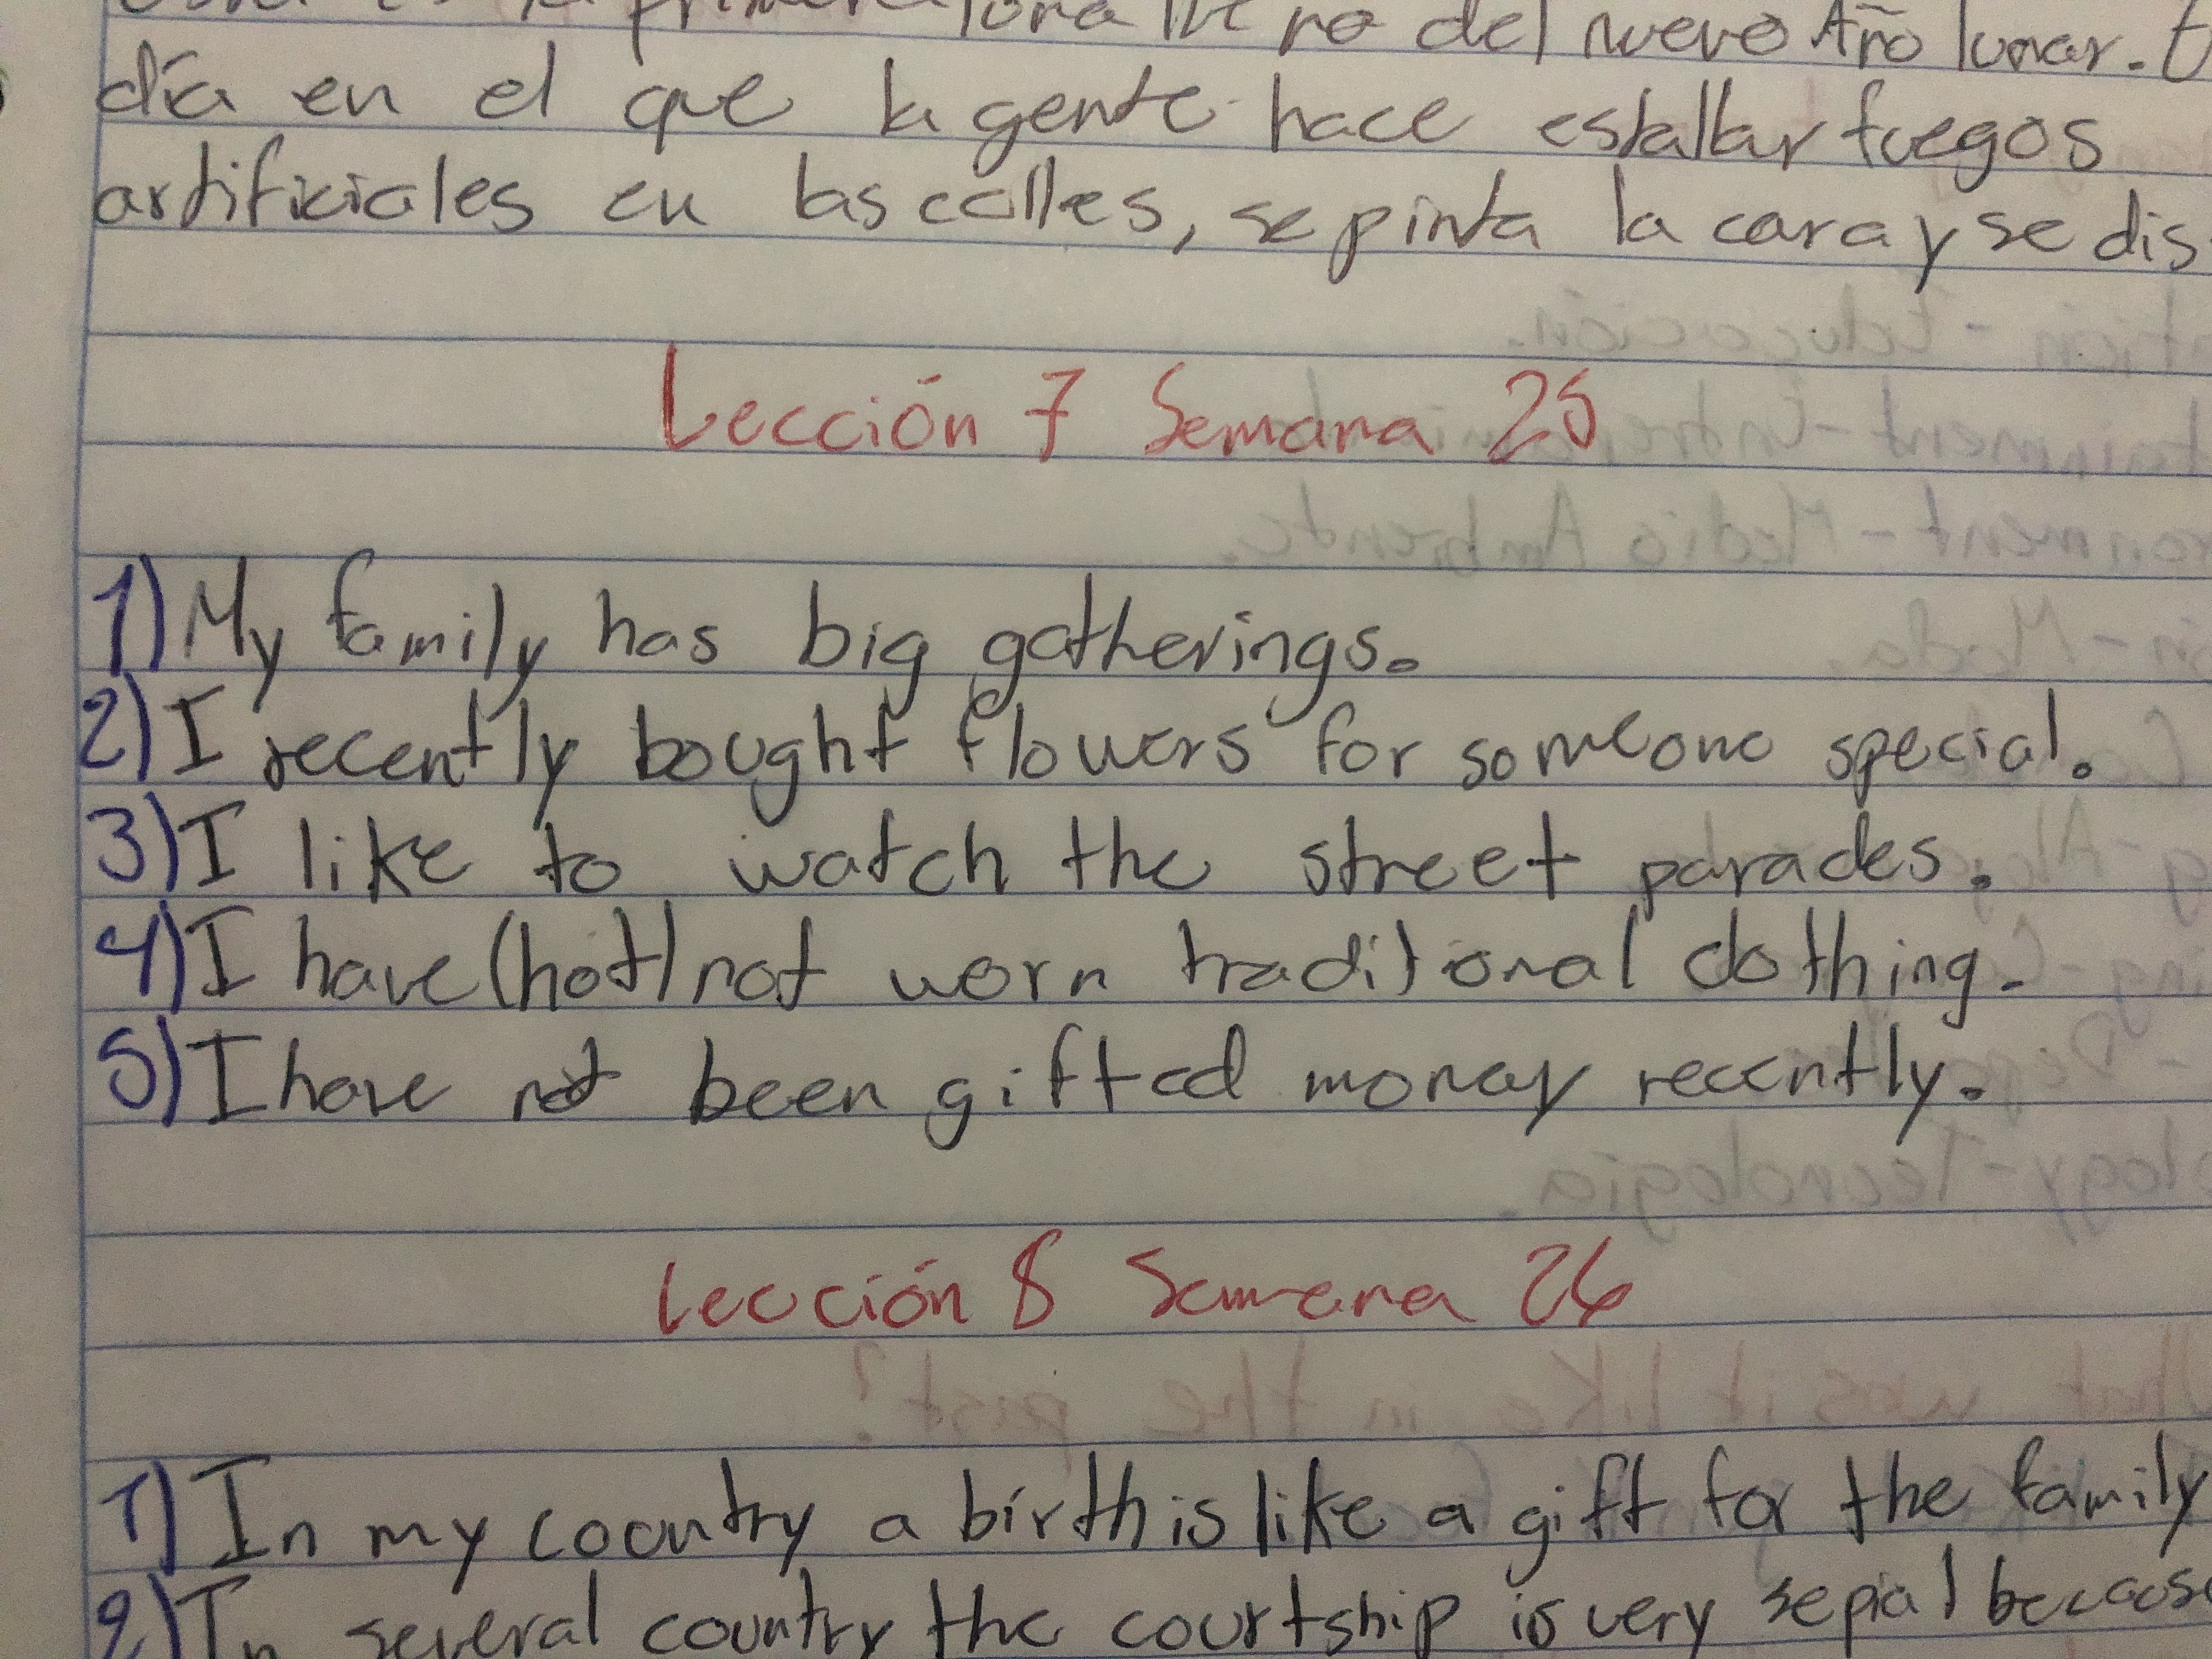 primera luna llena del nuevo Año lunar. E
día en el que la gente hace estallar fuegos
artificiales en las calles, se pinta la cara y se dis
Lección 7 Semana 25
1) My family has big gatherings.
2) I recently bought flowers for someone special.
3) I like to watch the street parades.
4) I have (hot) not worn traditional clothing.
5) I have not been gifted money recently.
Lección 8 Semana 26
1) In my coountry a birth is like a gift for the family
2) In several country the courtship is very sepial becaose